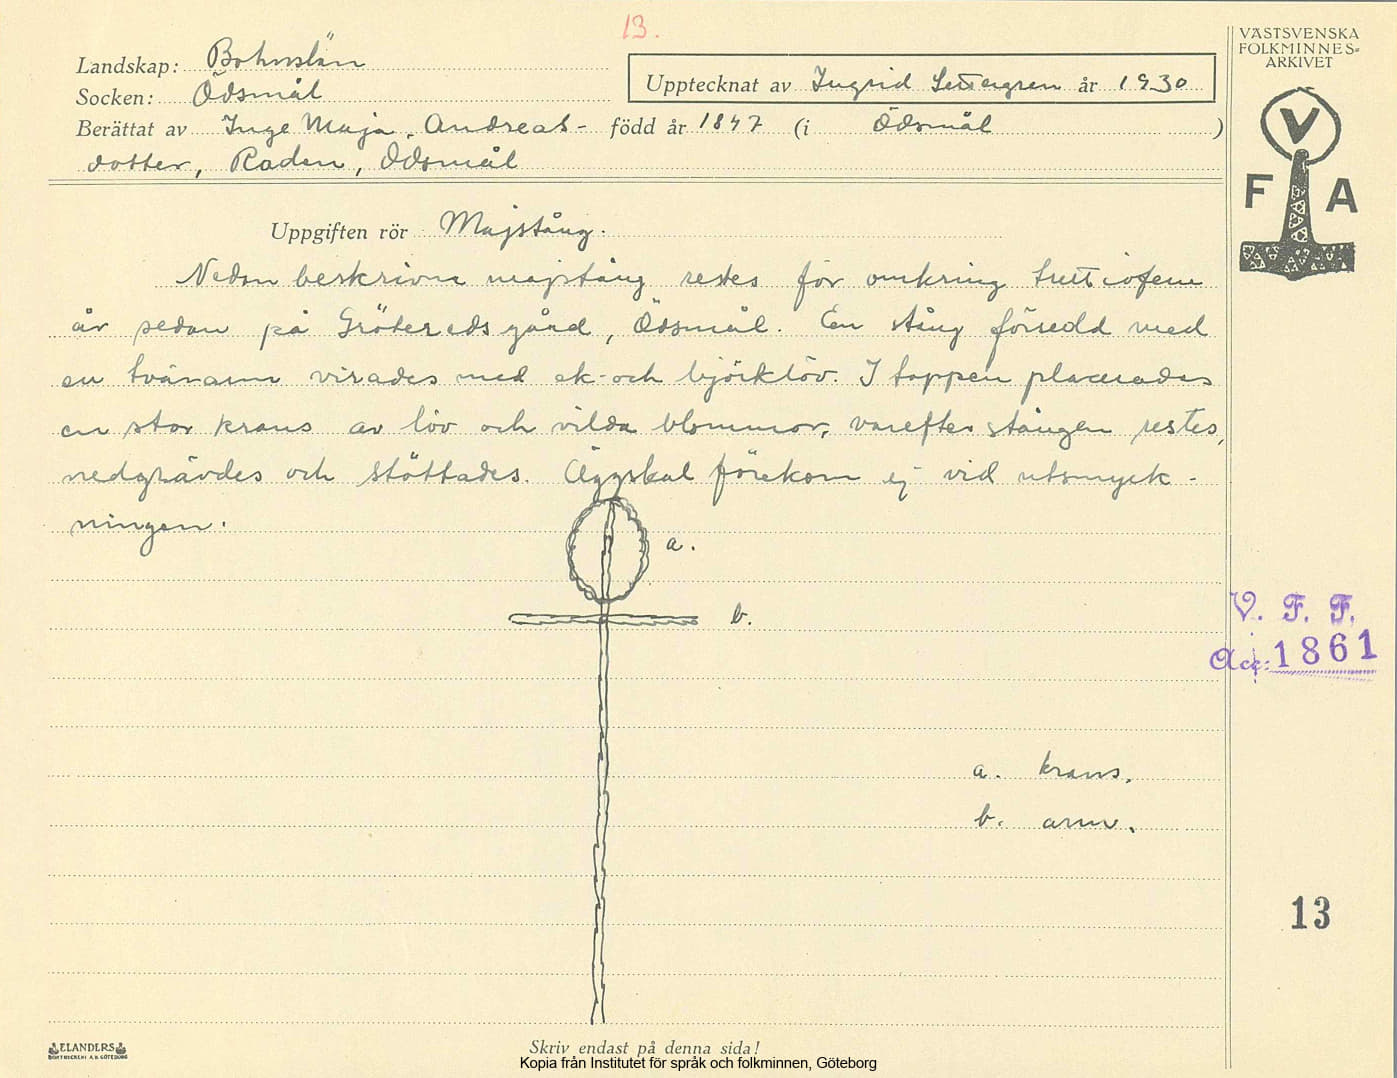 13.
VÄSTSVENSKA
FOLKMINNES-
ARKIVET
Landskap: Bohuslän
Upptecknat av Ingrid Settergren år 1930
Socken: Ödsmål
Berättat av Inge Maja Andreas- född år 1847 (i Ödsmål )
dotter, Raden, Ödsmål
V
F A
Uppgiften rör Majstång.
Nedan beskrivna majstång restes för omkring
år sedan på Grötereds gård, Ödsmål. En stång försedd med
en tvärarm virades med ek- och björklöv. I toppen placerades
en stor krans av löv och vilda blommor, varefter stången restes,
nedgrävdes och stöttades. Äggskal förekom ej vid utsmyck-
ningen.
a.
b.
V. F. F.
Acc: 1861
a. krans.
b. arm.
13
ELANDERS
BOKTRYCKERI A.B. GÖTEBORG
Skriv endast på denna sida!
Kopia från Institutet för språk och folkminnen, Göteborg